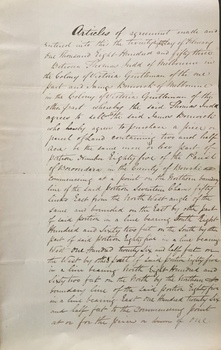 Articles of agreement made and
entered into this the day of
One thousand Eight Hundred and fifty three
Between Thomas Judd of Melbourne in
the Colony of Victoria Gentleman of the one
part and James Bonwick of Melbourne
in the Colony of Victoria Gentleman of the
other part whereby the said Thomas Judd
agrees to sell the said James Bonwick
who hereby agree to purchase a piece or
parcel of land containing two and half
acres be the same more or less part of
portion Number Eighty five of the Parish
of Boroondara in the County of Bourke
Commencing at a point on the Northern boundary
line of the said portion Seventeen Chains fifty
links East from the North West angle of the
same and bounded on the East by other part
of said portion in a line bearing South Eight
Hundred and Sixty two feet on the South by other
part of said portion Eighty five in a line bearing
West One hundred Twenty Six and half feet on
the West by other part of said portion Eighty five
in a line bearing North Eight Hundred and
Sixty two feet on the North by the Northern
boundary line of the said portion Eighty five
in a line bearing East One Hundred Twenty Six
and half feet to the Commencing point
at or for the price or sum of